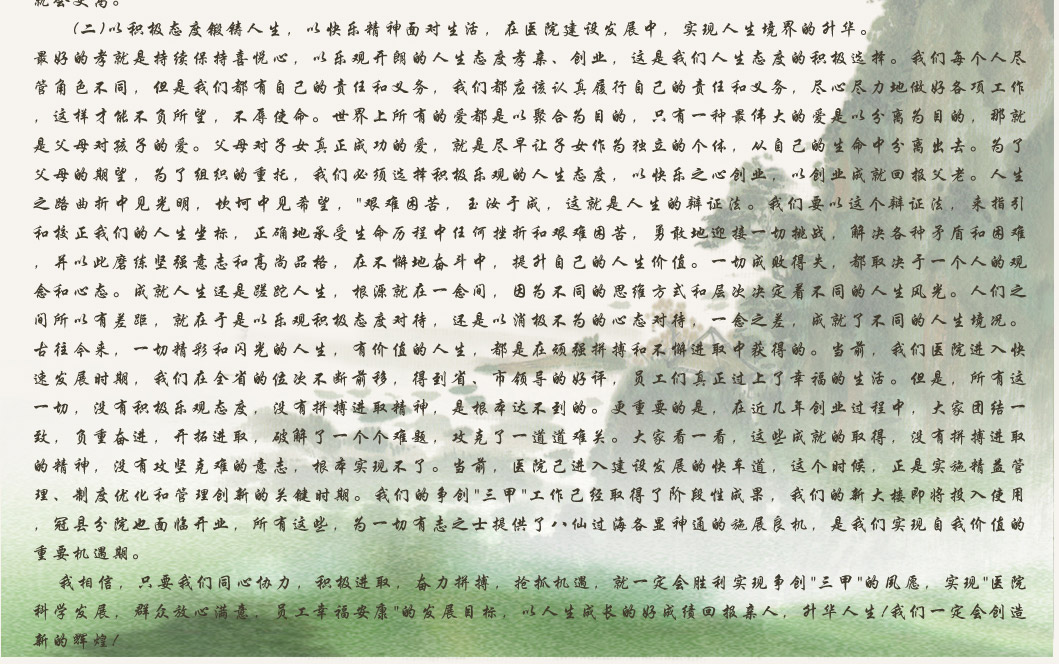 就会更高。
(二)以积极态度锻铸人生，以快乐精神面对生活，在医院建设发展中，实现人生境界的升华。
最好的孝就是持续保持喜悦心，以乐观开朗的人生态度孝亲、创业，这是我们人生态度的积极选择。我们每个人尽
管角色不同，但是我们都有自己的责任和义务，我们都应该认真履行自己的责任和义务，尽心尽力地做好各项工作
，这样才能不负所望，不辱使命。世界上所有的爱都是以聚合为目的，只有一种最伟大的爱是以分离为目的，那就
是父母对孩子的爱。父母对子女真正成功的爱，就是尽早让子女作为独立的个体，从自己的生命中分离出去。为了
父母的期望，为了组织的重托，我们必须选择积极乐观的人生态度，以快乐之心创业，以创业成就回报父老。人生
之路曲折中见光明，坎坷中见希望，"艰难困苦，玉汝于成，这就是人生的辩证法。我们要以这个辩证法，来指引
和校正我们的人生坐标，正确地承受生命历程中任何挫折和艰难困苦，勇敢地迎接一切挑战，解决各种矛盾和困难
，并以此磨练坚强意志和高尚品格，在不懈地奋斗中，提升自己的人生价值。一切成败得失，都取决于一个人的观
念和心态。成就人生还是蹉跎人生，根源就在一念间，因为不同的思维方式和层次决定着不同的人生风光。人们之
间所以有差距，就在于是以乐观积极态度对待，还是以消极不为的心态对待，一念之差，成就了不同的人生境况。
古往今来，一切精彩和闪光的人生，有价值的人生，都是在顽强拼搏和不懈进取中获得的。当前，我们医院进入快
速发展时期，我们在全省的位次不断前移，得到省、市领导的好评，员工们真正过上了幸福的生活。但是，所有这
一切，没有积极乐观态度，没有拼搏进取精神，是根本达不到的。更重要的是，在近几年创业过程中，大家团结一
致，负重奋进，开拓进取，破解了一个个难题，攻克了一道道难关。大家看一看，这些成就的取得，没有拼搏进取
的精神，没有攻坚克难的意志，根本实现不了。当前，医院已进入建设发展的快车道，这个时候，正是实施精益管
理、制度优化和管理创新的关键时期。我们的争创"三甲"工作已经取得了阶段性成果，我们的新大楼即将投入使用
，冠县分院也面临开业，所有这些，为一切有志之士提供了八仙过海各显神通的施展良机，是我们实现自我价值的
重要机遇期。
我相信，只要我们同心协力，积极进取，奋力拼搏，抢抓机遇，就一定会胜利实现争创"三甲"的夙愿，实现"医院
科学发展，群众放心满意，员工幸福安康"的发展目标，以人生成长的好成绩回报亲人，升华人生！我们一定会创造
新的辉煌！